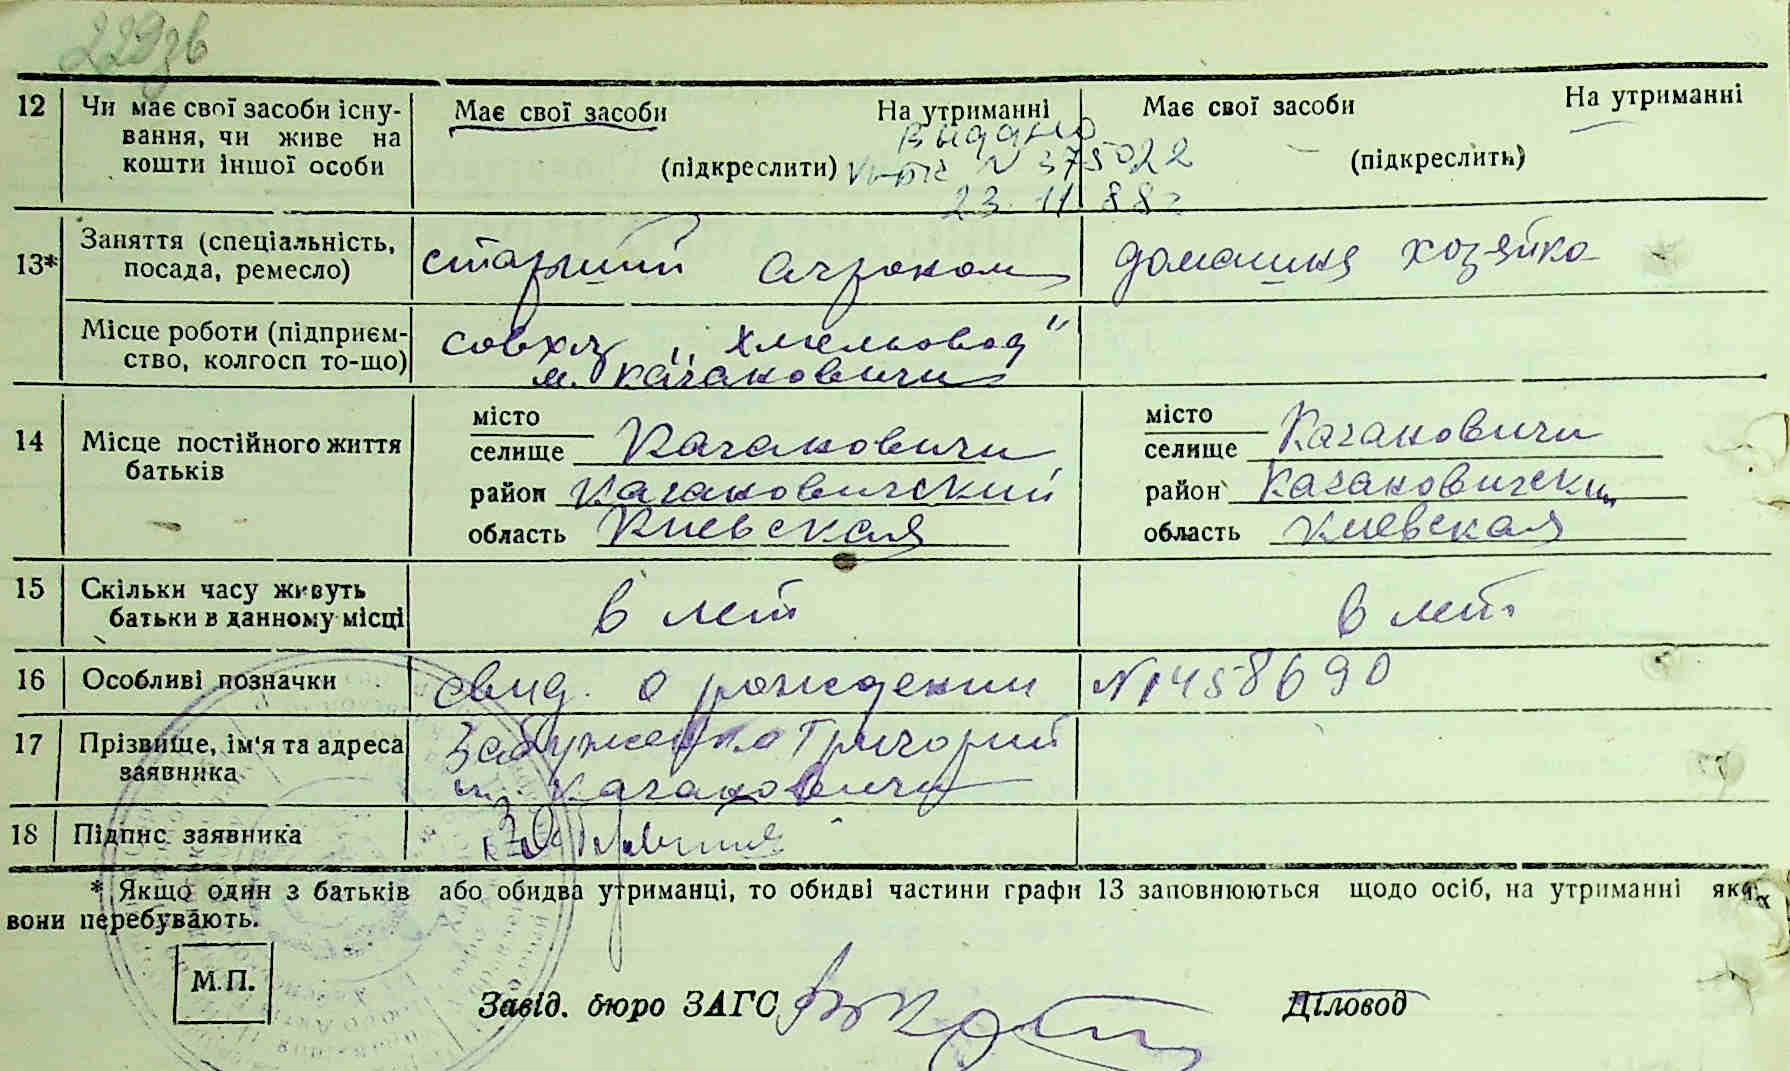 229зв
12 Чи має свої засоби існу- Має свої засоби На утриманні Має свої засоби На утриманні
вання, чи живе на Видано
кошти іншої особи (підкреслити) N 375022 (підкреслить)
23.11.88г
Заняття (спеціальність,
13* посада, ремесло) старший агроном домашняя хозяйка
Місце роботи (підприєм- совхоз „Хмельовод"
ство, колгосп то-що) м. Каганович
14 Місце постійного життя батьків
місто місто
селище Каганович селище Каганович
район Кагановичский район Кагановичский
область Киевская область Киевская
15 Скільки часу живуть 6 лет 6 лет
батьки в данному місці
16 Особливі позначки свид. о рождении N1458690
17 Прізвище, ім'я та адреса Забуженко Григорий
заявника м. Каганович
18 Підпис заявника
* Якщо один з батьків або обидва утриманці, то обидві частини графи 13 заповнюються щодо осіб, на утриманні яких
вони перебувають.
М.П.
Завід. бюро ЗАГС Діловод